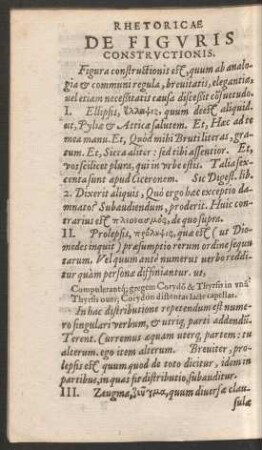 RHETORICAE
DE FIGVRIS
CONSTRVCTIONIS.
Figura constructionis est, quum ab analo-
gia & communi regula, breuitatis, elegantiæ,
uel etiam necessitatis causa discessit cōsuetudo.
I. Ellipsis, ἔλλειψις, quum deest aliquid.
ut, Tyliæ & Atticæ salutem. Et, Hac ad te
mea manu. Et, Quòd mihi Bruti literas, gra-
tum. Et, Sicca aliter: sed tibi assentior. Et,
vos scilicet plures, qui in vrbe estis. Talia sex-
centa sunt apud Ciceronem. Sic Digest. lib.
2. Dixerit aliquis, Quò ergo hæc exceptio da-
mnato? Subaudiendum, proderit. Huic con-
trarius est πλεονασμός, de quo supra.
II. Prolepsis, πρόληψις, qua est (ut Dio-
medes inquit) præsumptio rerum ordine sequu
tarum. Vel quum antè numerus verbo reddi-
tur quàm personæ diffiniantur. ut,
Compulerantq́; gregem Corydō & Thyrsis in vnū
Thyrsis oues; Corydon distentas lacte capellas.
In hac distributione repetendum est nume-
ro singulari verbum, & utriq; parti addendū.
Terent. Curremus æquam uterq; partem: tu
alterum. ego item alterum. Breuiter, pro-
lepsis est quum quod de toto dicitur, idem in
partibus, in quas fit distributio, subauditur.
III. Zeugma, ζεῦγμα, quum diuersæ clau
sulæ